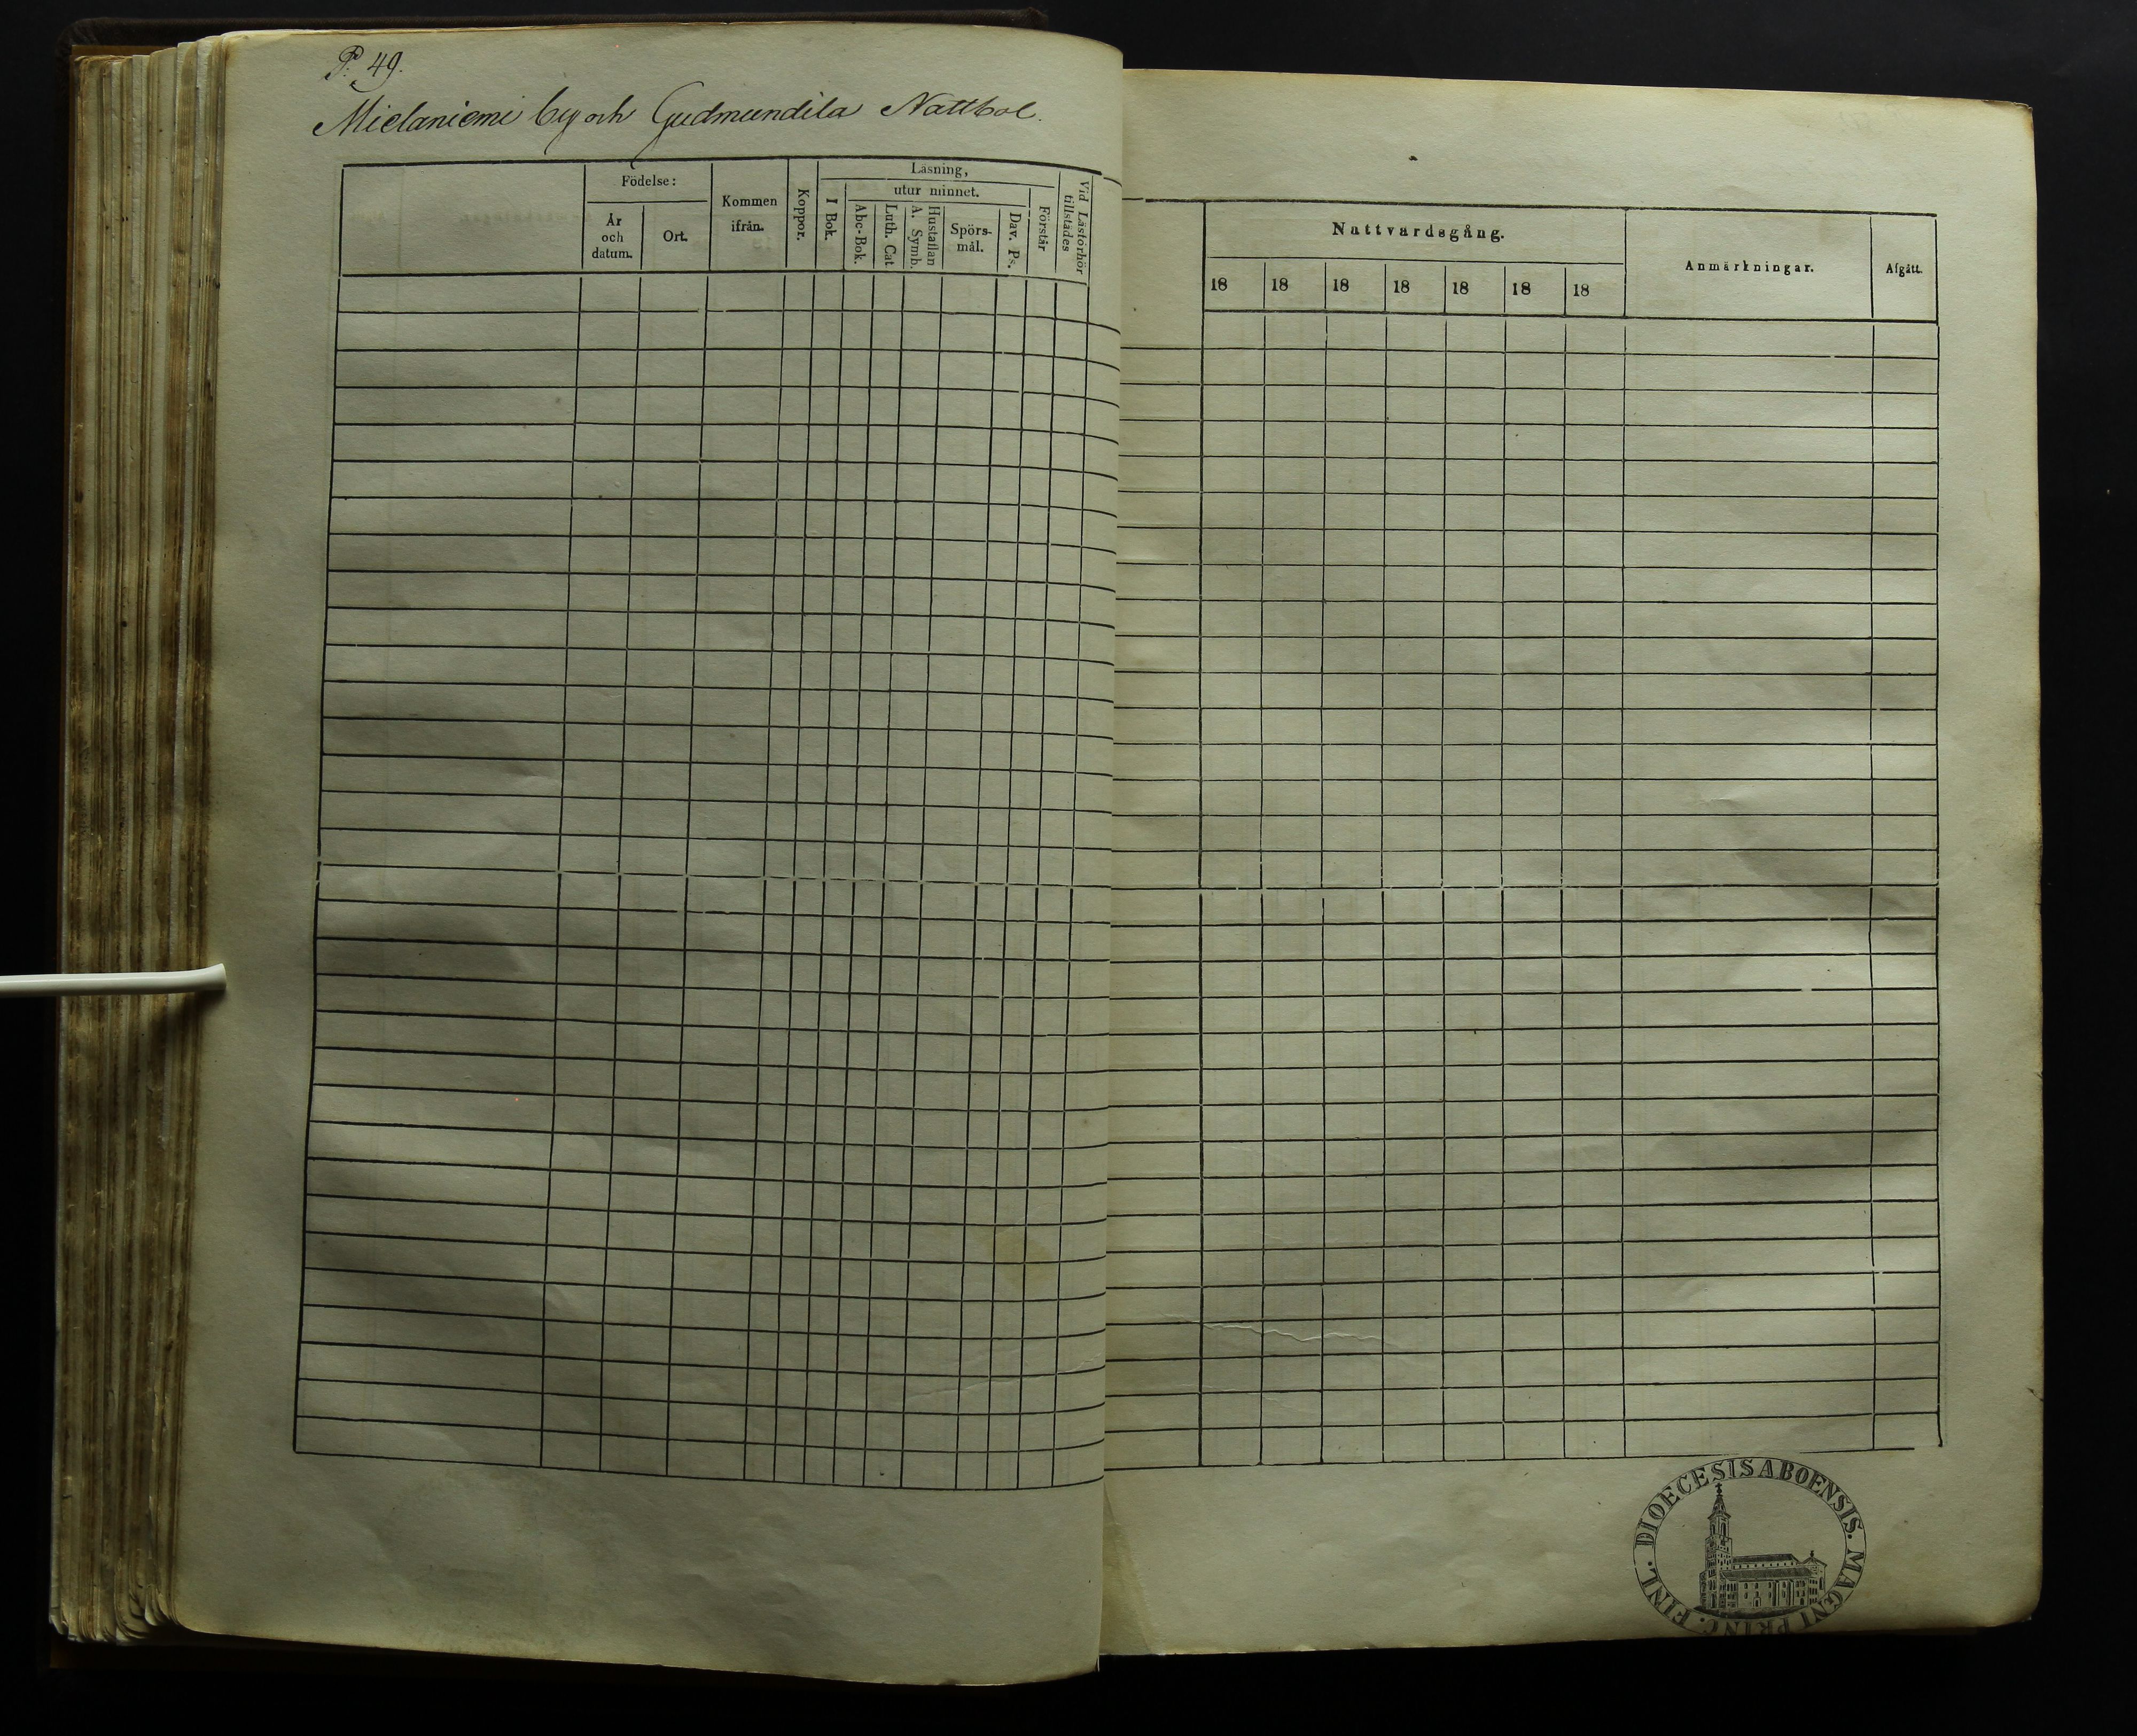 P. 49.
Mielaniemi by och Gudmundila Nattbol.
Födelse:
År
och
datum.
Ort.
Kommen
ifrån.
Koppor.
Läsning,
I Bok.
utur minnet.
Abc-Bok.
Luth. Cat
Hustaflan
A. Symb.
Spörs-
mål.
Dav. Ps.
Förstår
Vid Läsförhör
tillstädes
Nattvardsgång.
18 18 18 18 18 18 18
Anmärkningar.
Afgått.
DIOECESIS ABOENSIS. MAGNI PRINC. FINL.